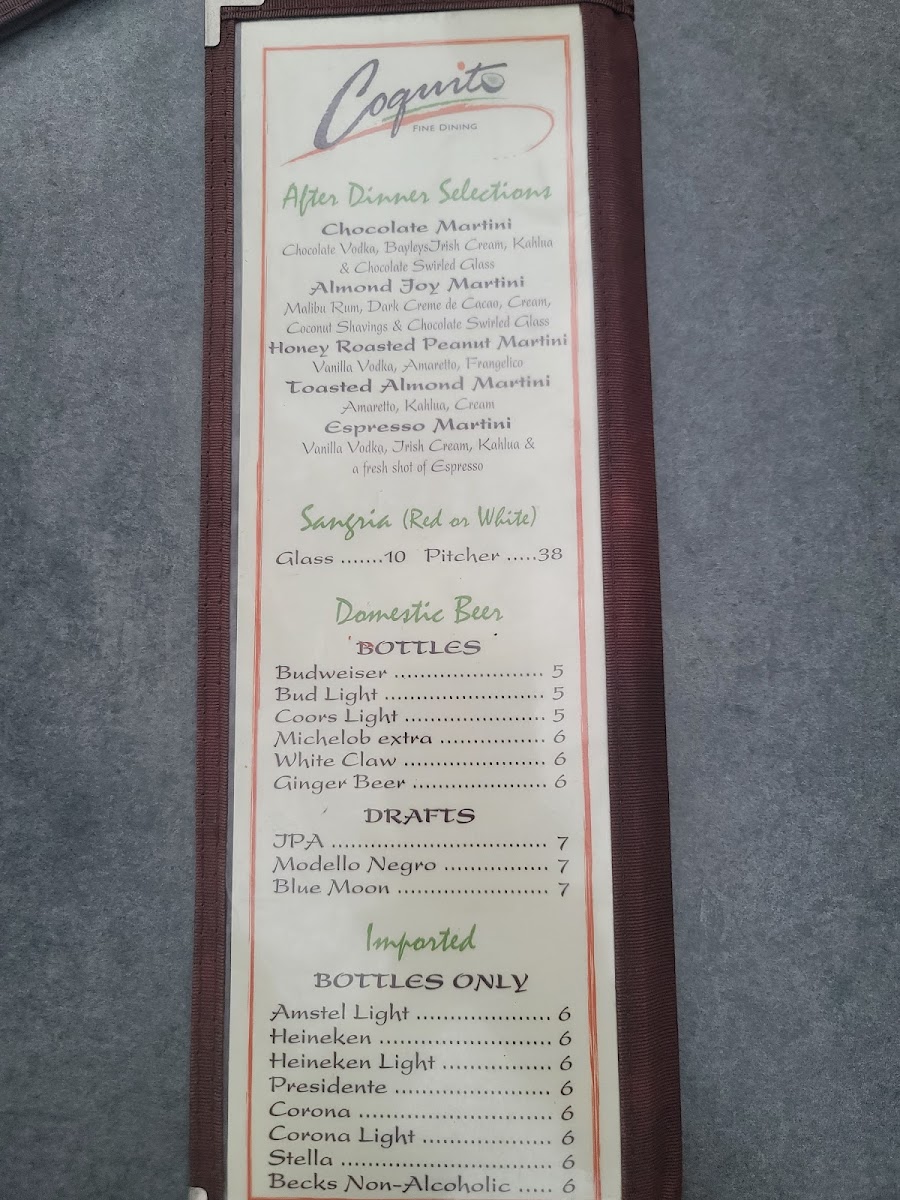 Coquito
FINE DINING
After Dinner Selections
Chocolate Martini
Chocolate Vodka, BayleysIrish Cream, Kahlua
& Chocolate Swirled Glass
Almond Joy Martini
Malibu Rum, Dark Creme de Cacao, Cream,
Coconut Shavings & Chocolate Swirled Glass
Honey Roasted Peanut Martini
Vanilla Vodka, Amaretto, Frangelico
Toasted Almond Martini
Amaretto, Kahlua, Cream
Espresso Martini
Vanilla Vodka, Irish Cream, Kahlua &
a fresh shot of Espresso
Sangria (Red or White)
Glass .......10 Pitcher .....38
Domestic Beer
BOTTLES
Budweiser ........................ 5
Bud Light ......................... 5
Coors Light ...................... 5
Michelob extra ................. 6
White Claw ....................... 6
Ginger Beer ...................... 6
DRAFTS
IPA ................................... 7
Modello Negro ................. 7
Blue Moon ........................ 7
Imported
BOTTLES ONLY
Amstel Light ..................... 6
Heineken ........................... 6
Heineken Light ................. 6
Presidente ......................... 6
Corona ............................... 6
Corona Light ..................... 6
Stella .................................. 6
Becks Non-Alcoholic ..... 6